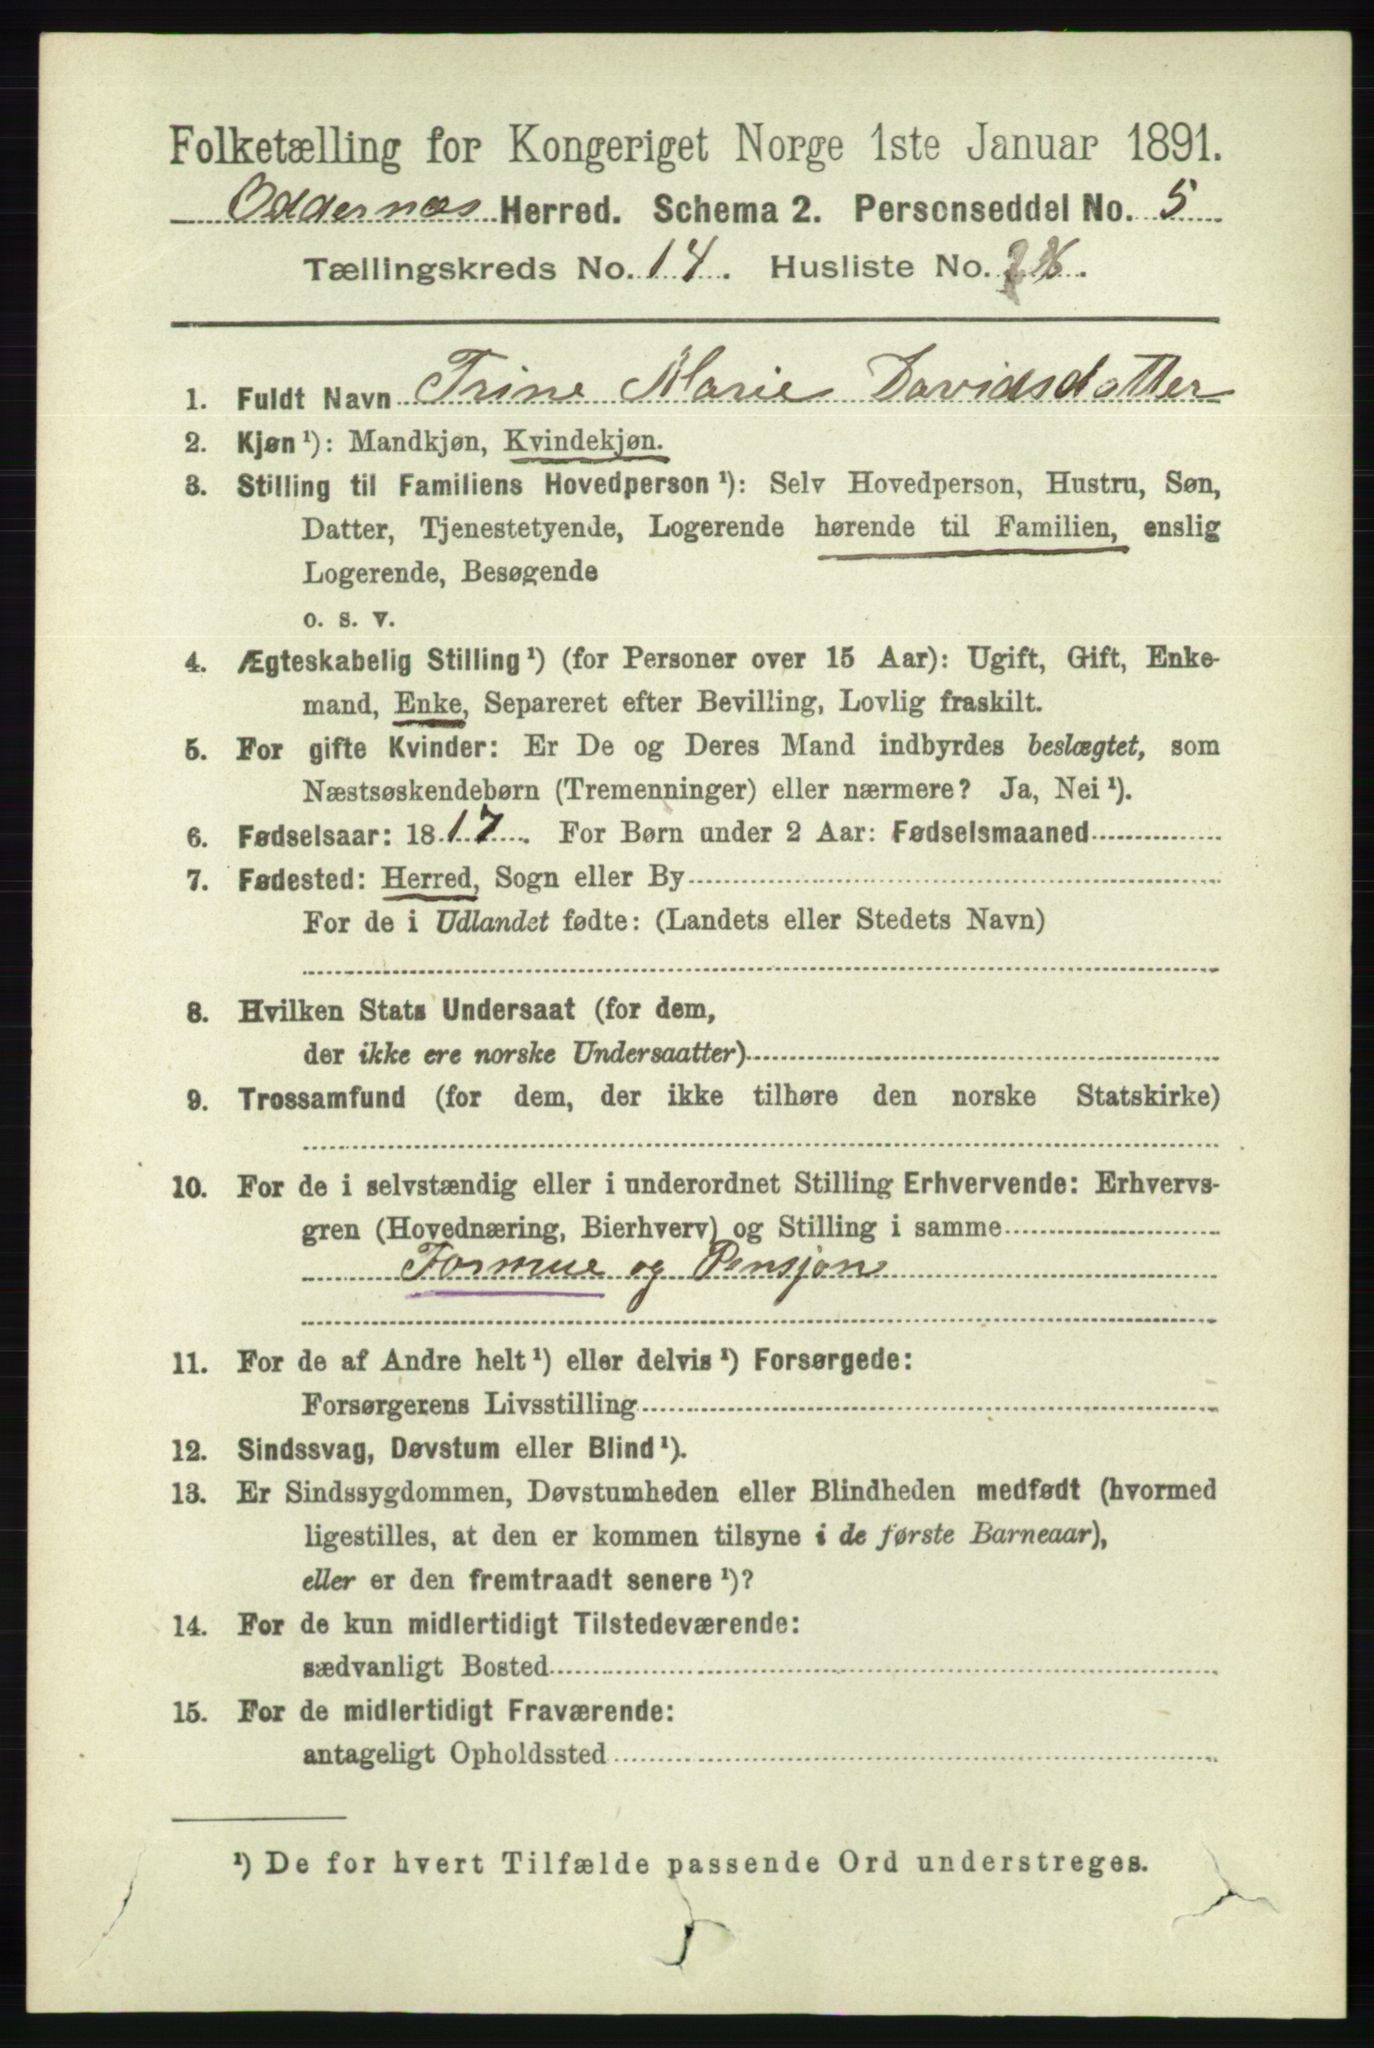 Folketælling for Kongeriget Norge 1ste Januar 1891.
Oddernes Herred. Schema 2. Personseddel No. 5
Tællingskreds No. 14. Husliste No.
1. Fuldt Navn Trine Marie Davidsdatter
2. Kjøn¹): Mandkjøn, Kvindekjøn.
3. Stilling til Familiens Hovedperson¹): Selv Hovedperson, Hustru, Søn,
Datter, Tjenestetyende, Logerende hørende til Familien, enslig
Logerende, Besøgende
o. s. v.
4. Ægteskabelig Stilling¹) (for Personer over 15 Aar): Ugift, Gift, Enke-
mand, Enke, Separeret efter Bevilling, Lovlig fraskilt.
5. For gifte Kvinder: Er De og Deres Mand indbyrdes beslægtet, som
Næstsøskendebørn (Tremenninger) eller nærmere? Ja, Nei¹).
6. Fødselsaar: 1817. For Børn under 2 Aar: Fødselsmaaned
7. Fødested: Herred, Sogn eller By
For de i Udlandet fødte: (Landets eller Stedets Navn)
8. Hvilken Stats Undersaat (for dem,
der ikke ere norske Undersaatter)
9. Trossamfund (for dem, der ikke tilhøre den norske Statskirke)
10. For de i selvstændig eller i underordnet Stilling Erhvervende: Erhvervs-
gren (Hovednæring, Bierhverv) og Stilling i samme
Formue og Pensjon
11. For de af Andre helt¹) eller delvis¹) Forsørgede:
Forsørgerens Livsstilling
12. Sindssvag, Døvstum eller Blind¹).
13. Er Sindssygdommen, Døvstumheden eller Blindheden medfødt (hvormed
ligestilles, at den er kommen tilsyne i de første Barneaar),
eller er den fremtraadt senere¹)?
14. For de kun midlertidigt Tilstedeværende:
sædvanligt Bosted
15. For de midlertidigt Fraværende:
antageligt Opholdssted
¹) De for hvert Tilfælde passende Ord understreges.